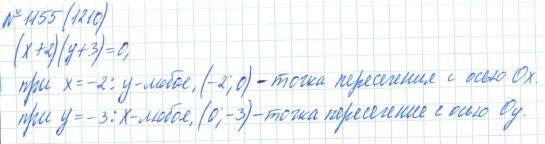 № 1155 (1210)
(x+2)(y+3)=0,
при x=-2: y-любое, (-2; 0) - точка пересечения с осью Ox.
при y=-3: x-любое, (0; -3) - точка пересечение с осью Oy.